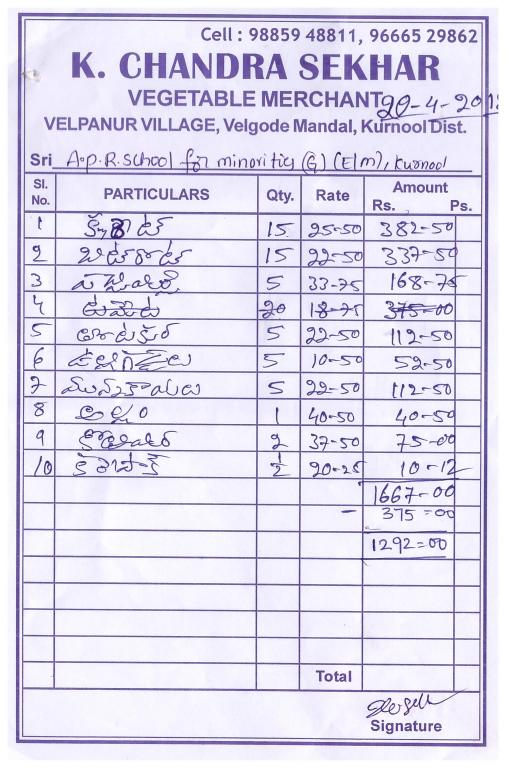 Cell : 98859 48811, 96665 29862
K. CHANDRA SEKHAR
VEGETABLE MERCHANT
20-4-201
VELPANUR VILLAGE, Velgode Mandal, Kurnool Dist.
Sri A.p.R.School for minorities (G) (E/m), Kurnool
Sl. No. PARTICULARS Qty. Rate Amount Rs. Ps.
1 15 25-50 382-50
2 బీట్‌రూట్ 15 22-50 337-50
3 5 33-75 168-75
4 టమోట 20 18-75 375-00
5 తోటకూర 5 22-50 112-50
6 ఉల్లిగడ్డలు 5 10-50 52-50
7 మునక్కాయలు 5 22-50 112-50
8 అల్లం 1 40-50 40-50
9 2 37-50 75-00
10 1/2 20-25 10-12
1667-00
- 375=00
1292=00
Total
Signature